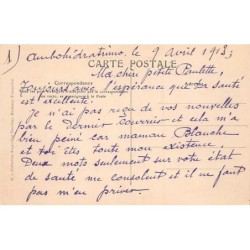 1) Ambohidratrimo, le 9 Avril 1913;
CARTE POSTALE
Ma chère petite Paulette,
Correspondance
Toujours avec l'espérance que ta santé
est excellente.
Je n'ai pas reçu de vos nouvelles
par le dernier courrier et cela m'a
bien peiné car maman Blanche
et toi êtes toute mon existence.
Deux mots seulement sur votre état
de santé me consolent et il ne faut
pas m'en priver.